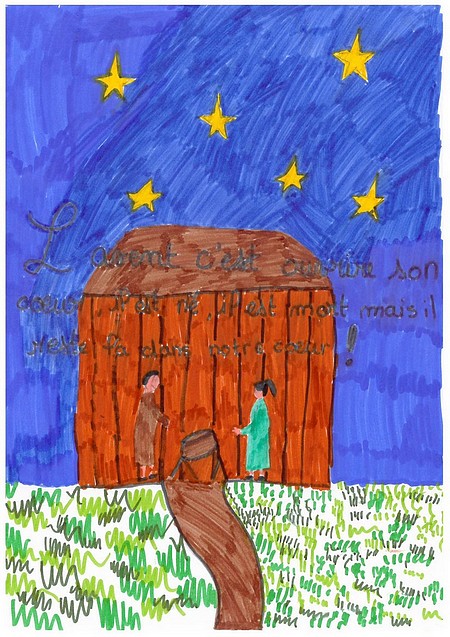 L'avent c'est ouvrire son
coeur, il est né, il est mort mais il
reste là dans notre coeur !